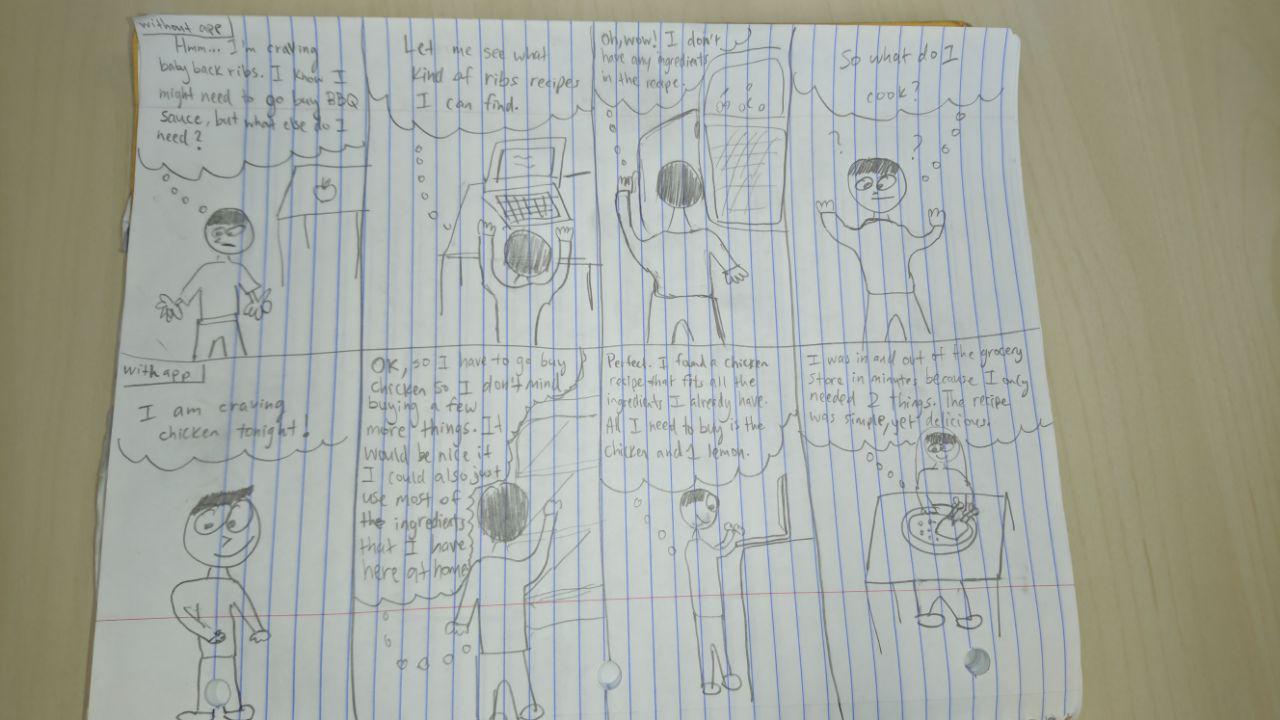 without app
Hmm... I'm craving
baby back ribs. I know I
might need to go buy BBQ
sauce, but what else do I
need?
Let me see what
kind of ribs recipes
I can find.
Oh, wow! I don't
have any ingredients
in the recipe.
So what do I
cook?
? ?
with app
I am craving
chicken tonight!
OK, so I have to go buy
chicken so I don't mind
buying a few
more things. It
would be nice if
I could also just
use most of
the ingredients
that I have
here at home
Perfect. I found a chicken
recipe that fits all the
ingredients I already have.
All I need to buy is the
chicken and 1 lemon.
I was in and out of the grocery
store in minutes because I only
needed 2 things. The recipe
was simple, yet delicious.